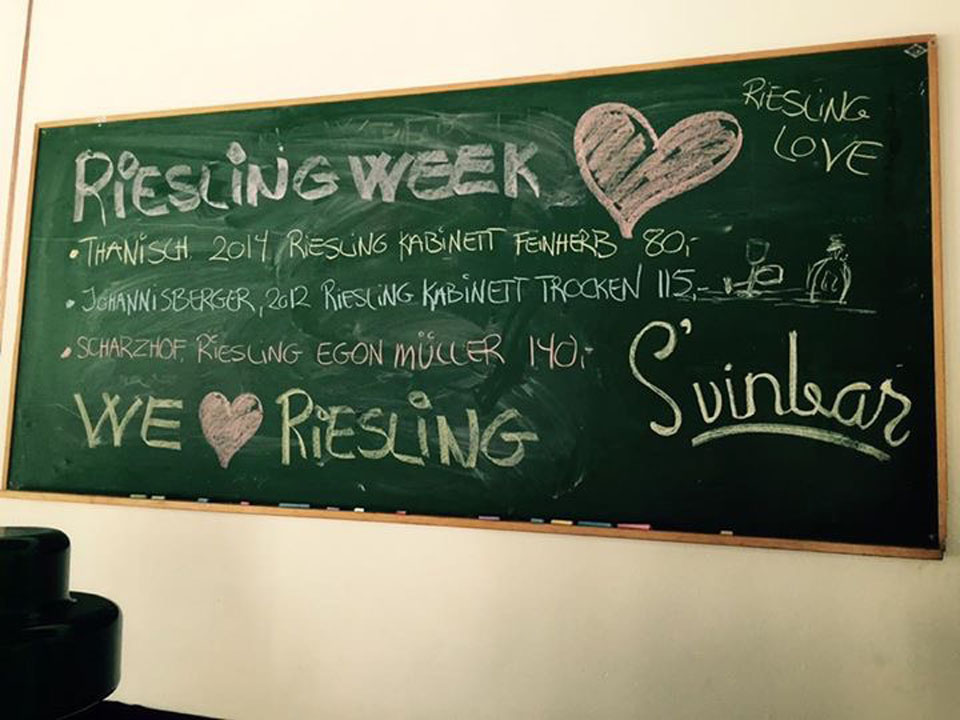 RIESLING WEEK
RIESLING
LOVE
• THANISCH 2014 RIESLING KABINETT FEINHERB 80,-
• JOHANNISBERGER, 2012 RIESLING KABINETT TROCKEN 115,-
• SCHARZHOF, RIESLING EGON MÜLLER 140,-
WE ♥ RIESLING
S'vinbar